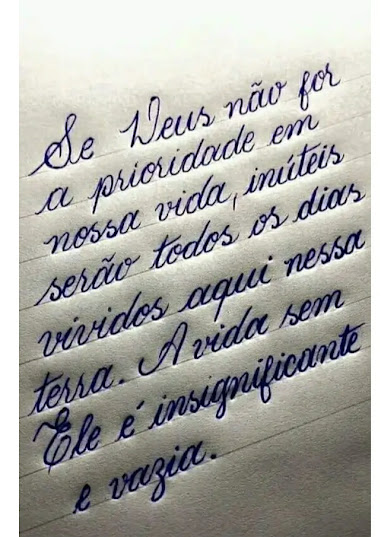 Se Deus não for
a prioridade em
nossa vida, inúteis
serão todos os dias
vividos aqui nessa
terra. A vida sem
Ele é insignificante
e vazia.